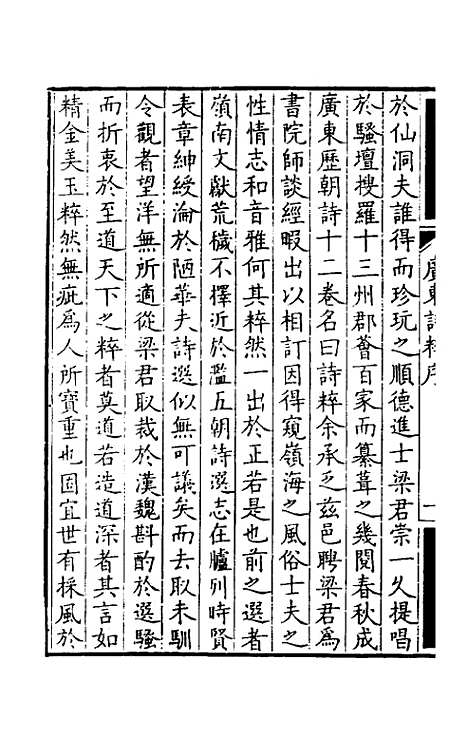 於仙洞夫誰得而珍玩之順德進士梁君崇一久提唱
於騷壇搜羅十三州郡薈百家而纂葺之幾閱春秋成
廣東歷朝詩十二卷名曰詩粹余承乏茲邑聘梁君爲
書院師談經暇出以相訂因得窺嶺海之風俗士夫之
性情志和音雅何其粹然一出於正若是也前之選者
嶺南文獻荒穢不擇近於濫五朝詩選志在臚列時賢
表章紳綬淪於陋華夫詩選似無可議矣而去取未馴
令觀者望洋無所適從梁君取裁於漢魏斟酌於選騷
而折衷於至道天下之粹者莫道若造道深者其言如
精金美玉粹然無疵爲人所寶重也固宜世有採風於
廣東詩粹序
二